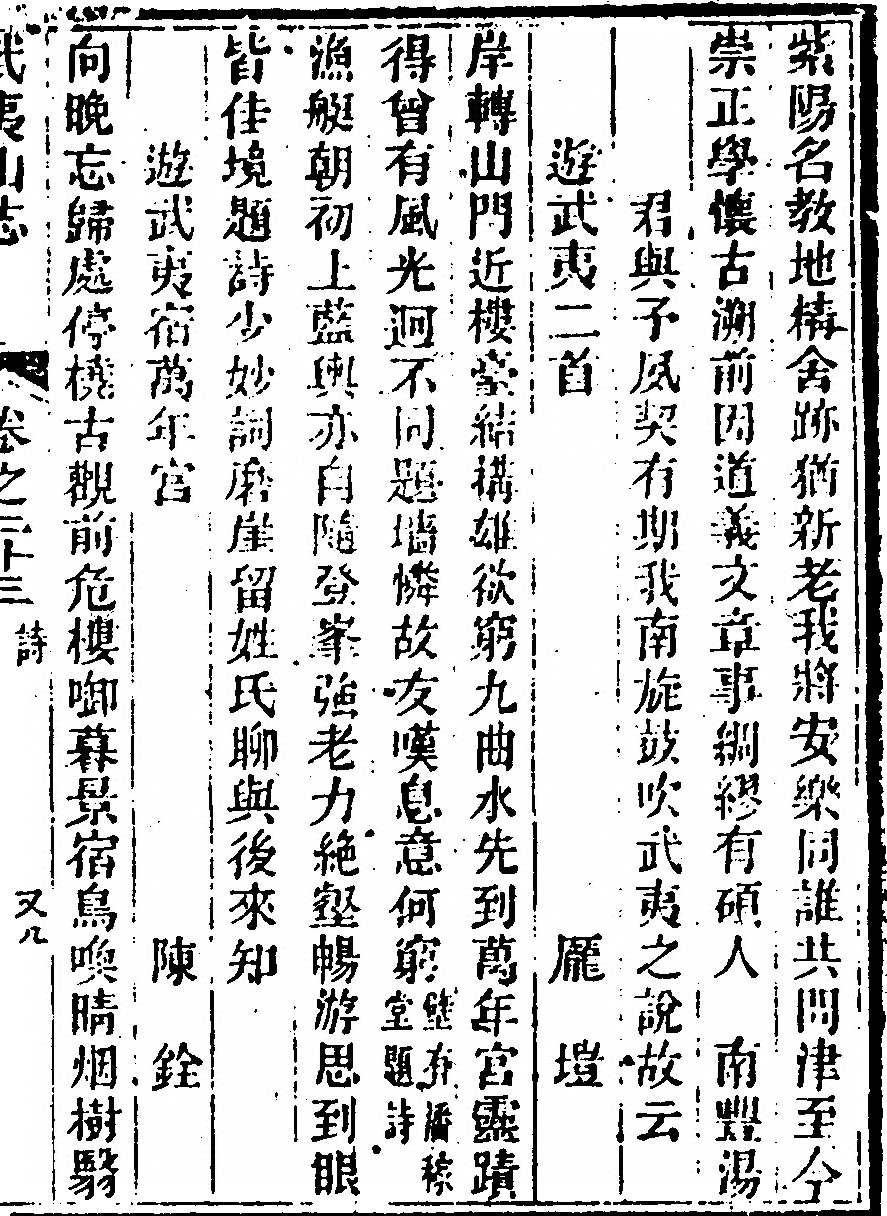 紫陽名教地精舍跡猶新老我將安樂同誰共問津至今
崇正學懷古溯前因道義文章事綢繆有碩人　南豐湯
君與予夙契有期我南旋鼓吹武夷之說故云
遊武夷二首　龎塏
岸轉山門近樓臺結搆雄欲窮九曲水先到萬年宮靈蹟
得曾有風光迥不同題墙憐故友嘆息意何窮壁有潘稼堂題詩
漁艇朝初上藍輿亦自隨登峯強老力絶壑暢游思到眼
皆佳境題詩少妙詞磨崖留姓氏聊與後來知
遊武夷宿萬年宮　陳銓
向晚忘歸處停橈古觀前危樓啣暮景宿鳥喚晴烟樹翳
武夷山志　卷之二十三　詩　又八